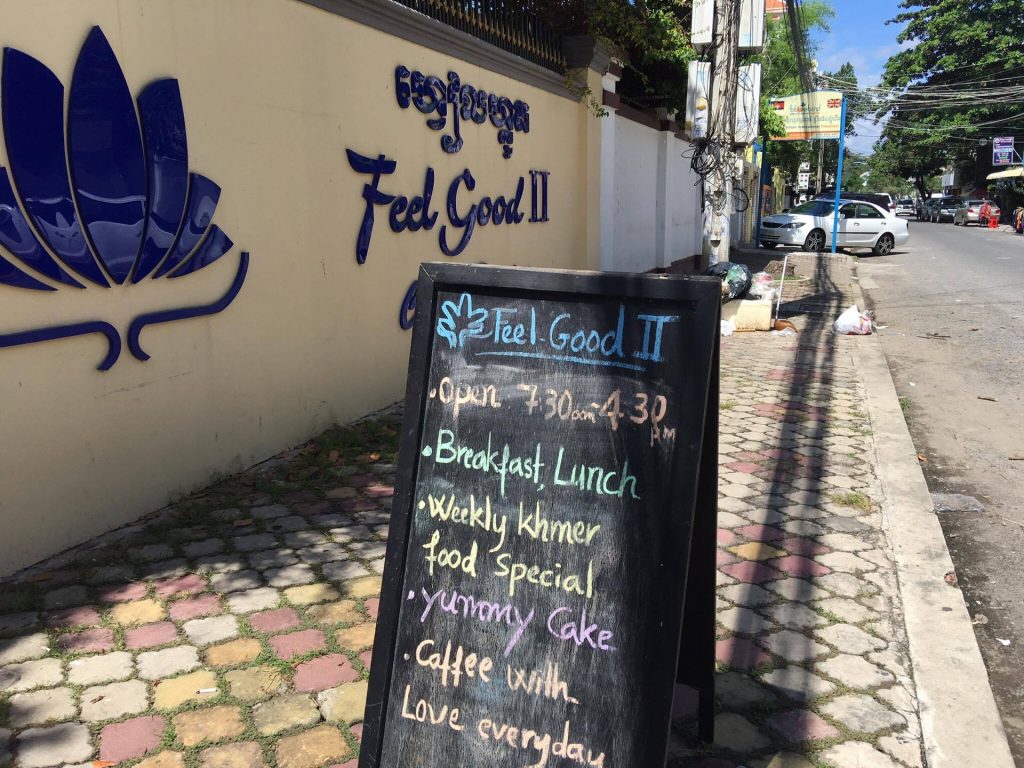 Feel Good II
Feel Good II
• Open 7 30am-4.30pm
• Breakfast, Lunch
• Weekly Khmer
food Special
• Yummy Cake
• Coffee with
Love everyday